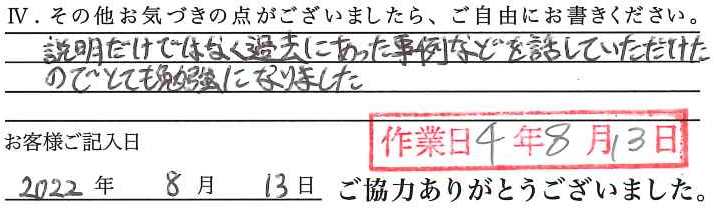 Ⅳ．その他お気づきの点がございましたら、ご自由にお書きください。
説明だけではなく過去にあった事例などを話していただけた
のでとても勉強になりました
お客様ご記入日
作業日4年8月13日
2022年 8月 13日 ご協力ありがとうございました。